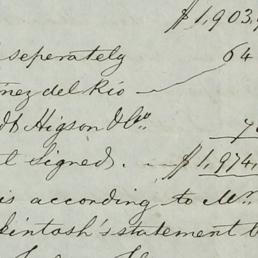 $1,903,
seperately 64
ñez del Rio
dt Higson & Co. 7
t signed. $1,974,
is according to Mr.
ckintosh's statement t